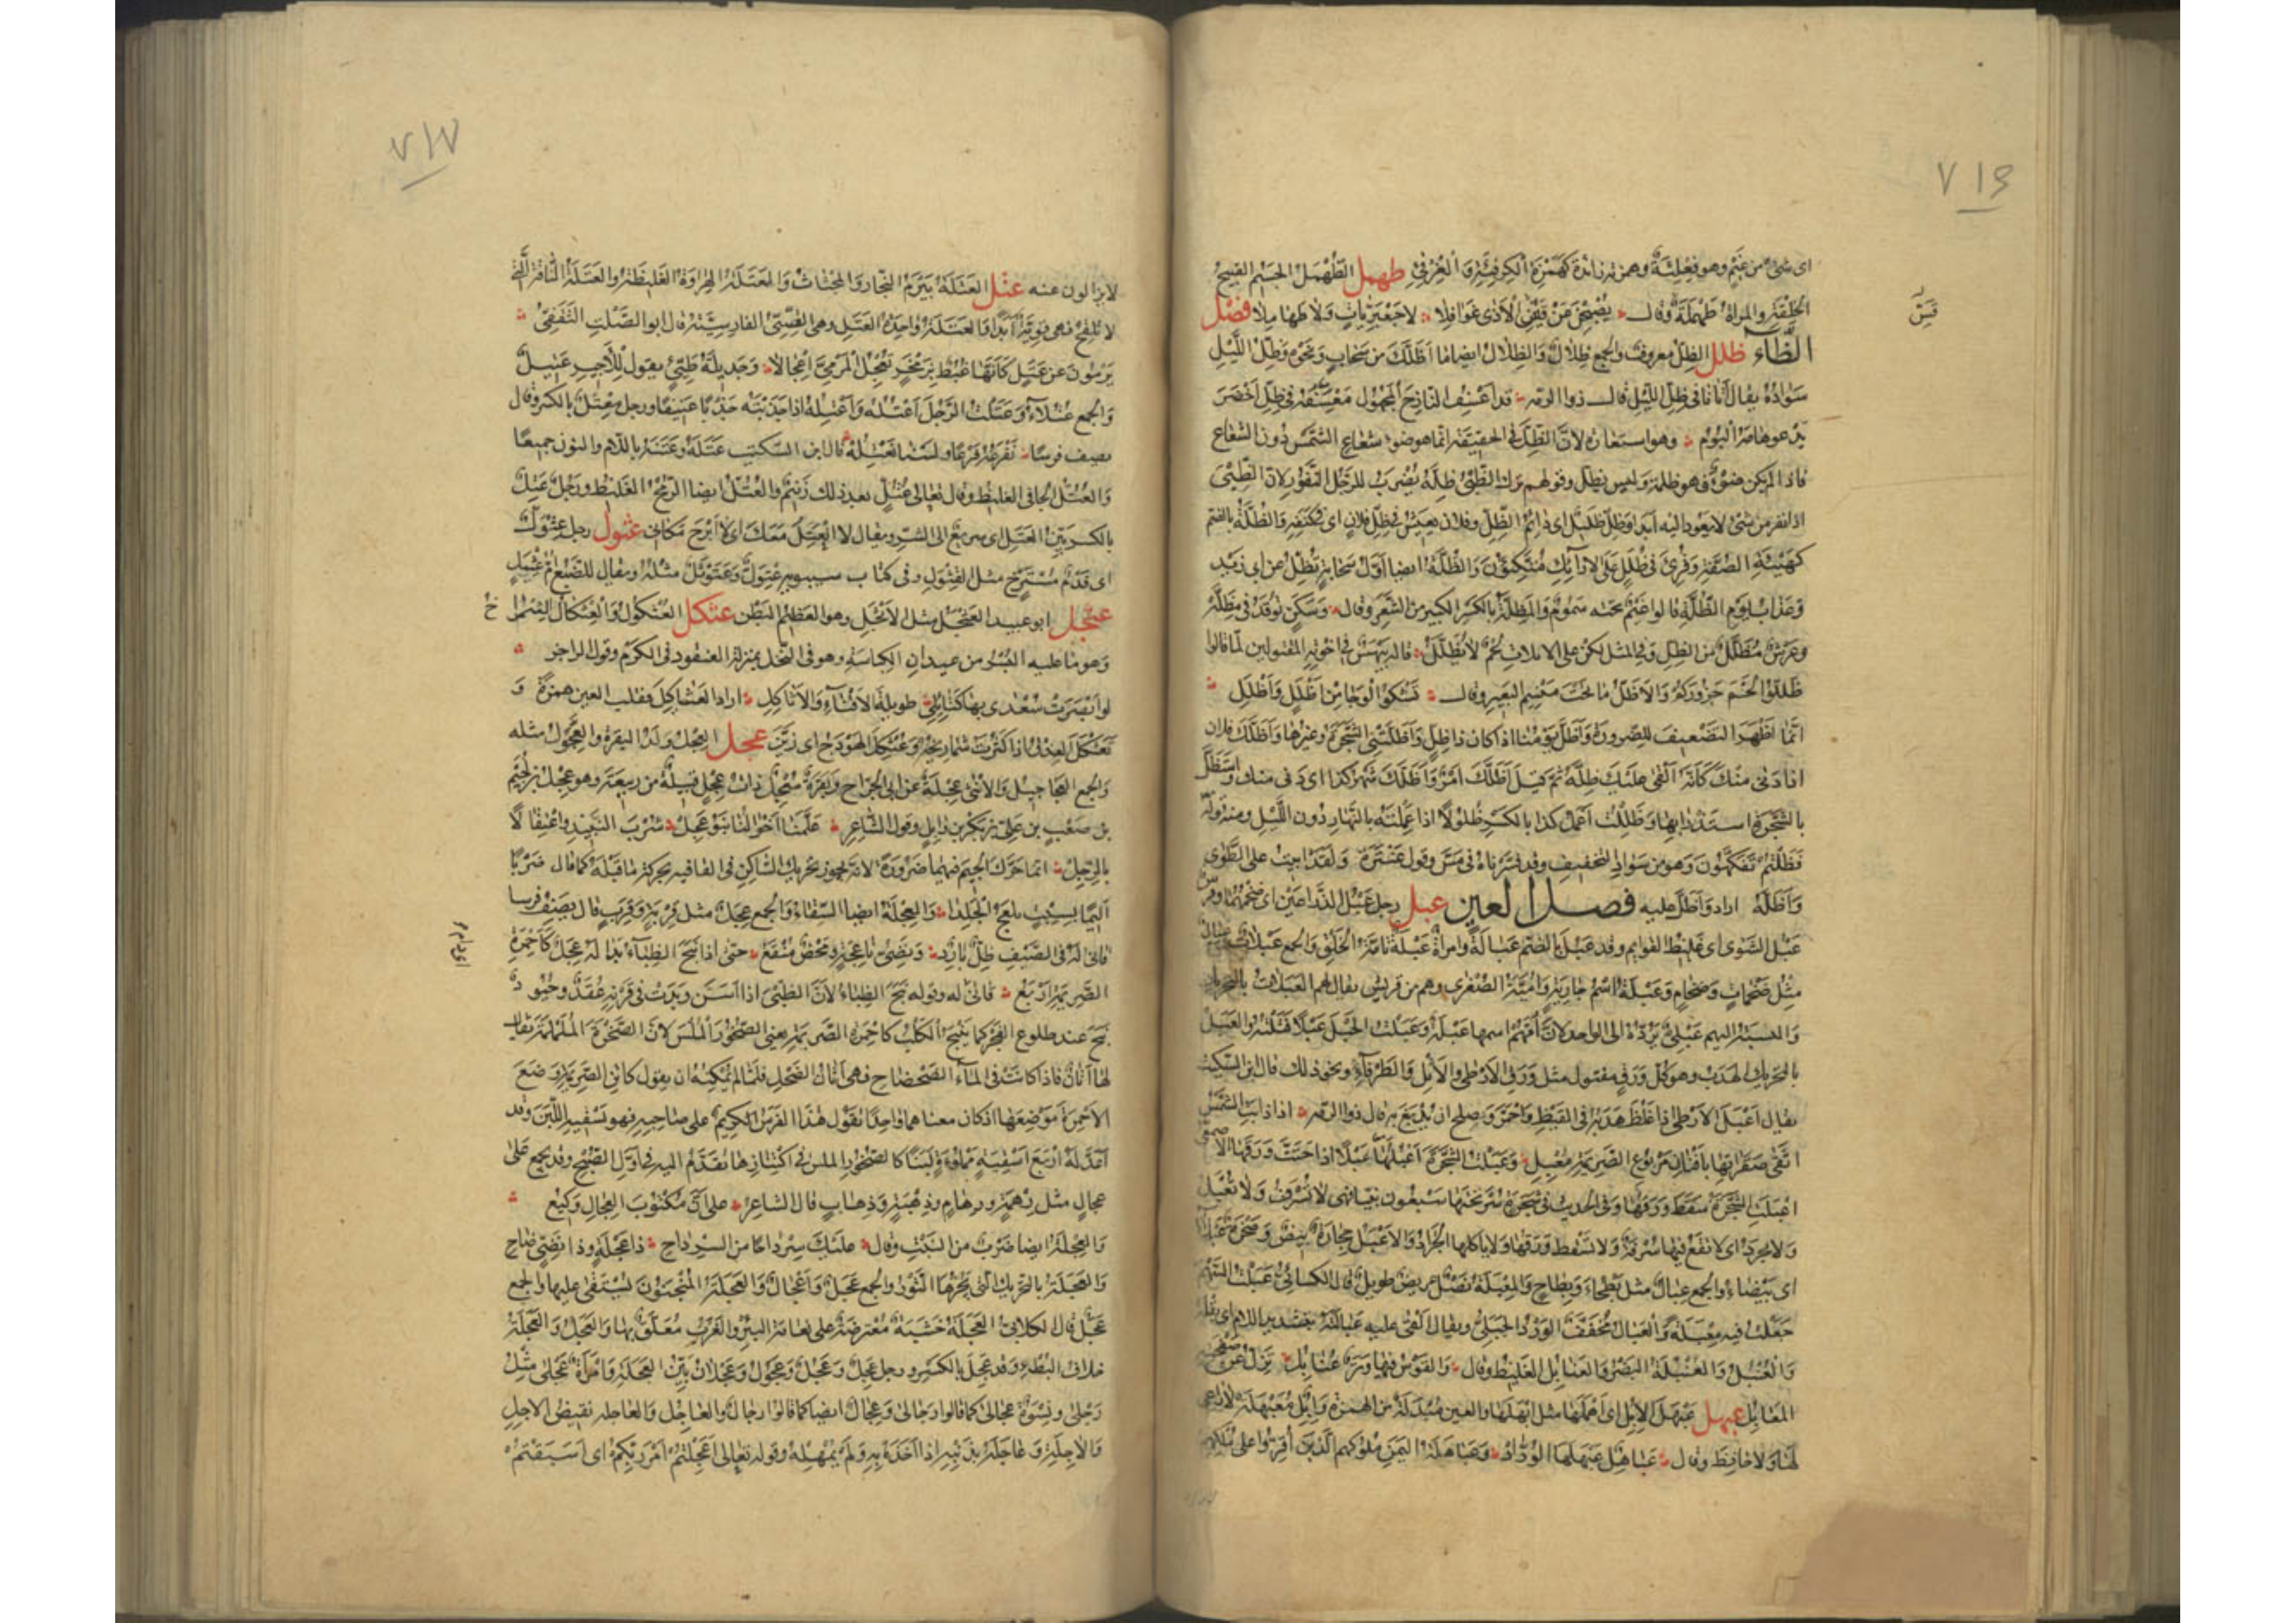 ٧١٦
اى شىء من غيم وهو فعلئة وهمزته زائدة كهمزة الكرفئة والغرقئ طهمل الطهمل الجسيم القبيح
الخلقة والمراة طهملة وقال يصبحن من قس الاذى غوافلا لا جعبريات ولا طهاملا فصل
قس
الظاء ظلل الظل معروف والجمع ظلال والظلال ايضا ما اظلك من سحاب ونحوه وظل الليل
سواده يقال اتانا فى ظل الليل قال ذو الرمه قد اعسف النازح المجهول معسفه فى ظل اخضر
يدعو هامه البوم وهو استعارة لان الظل فى الحقيقة انما هو ضوء شعاع الشمس دون الشعاع
فاذا لم يكن ضوء فهو ظلمة وليس بظل وقولهم ترك الظبى ظله يضرب للرجل النفور لان الظبى
اذا نفر من شىء لا يعود اليه ابدا وظل ظليل اى دائم الظل وفلان يعيش فى ظل فلان اى فى كنفه والظلة بالضم
كهيئة الصفة وقرئ فى ظلل على الارائك متكئون والظلة ايضا اول سحابة تظل عن ابى زيد
وعذاب يوم الظلة قالوا غيم تحته سموم والمظلة بالكسر الكبير من الشعر وقال وسكن توقد فى مظله
وعرش مظلل من الظل وفى المثل لكن على الاثلاث لحم لا يظلل قاله بيهس فى اخوته المقتولين لما قالوا
ظللوا لحم جزوركم والاظل ما تحت منسم البعير وقال تشكو الوجا من اظلل واظلل
انما اظهر التضعيف للضرورة واظل يومنا اذا كان ذا ظل واظلتنى الشجرة وغيرها واظلك فلان
اذا دنى منك كانه القى عليك ظله ثم قيل اظلك امر واظلك شهر كذا اى دنى منك واستظل
بالشجرة استذرى بها وظللت اعمل كذا بالكسر ظلولا اذا عملته بالنهار دون الليل ومنه قوله
فظلتم تفكهون وهو من شواذ التخفيف وقد فسرناه فى مس وقول عنترة ولقد ابيت على الطوى
واظله اراد واظل عليه فصل العين عبل رجل عبل الذراعين اى ضخمهما وفرس
عبل الشوى اى غليظ القوايم وقد عبل بالضم عبالة وامراة عبلة تامة الخلق والجمع عبلات وعبال
مثل ضخمات وضخام وعبلة اسم جارية وامية الصغرى وهم من قريش يقال لهم العبلات بالتحريك
والنسبة اليهم عبلى يرده الى الواحد لان امهم اسمها عبلة وعبلت الحبل عبلا فتلته والعبل
بالتحريك الهدب وهو كل ورق مفتول مثل ورق الارطى والاثل والطرفاء ونحو ذلك قال ابن السكيت
يقال اعبل الارطى اذا غلظ هدبه فى القيظ واحمر وصلح ان يدبغ به قال ذو الرمة اذا ذابت الشمس
اتقى صقراتها بافنان مربوع الصريمة معبل وعبلت الشجرة اعبلها عبلا اذا حتت ورقها الاصمعى
اعبلت الشجرة سقط ورقها وفى الحديث فى شجرة سر تحتها سبعون نبيا فهى لا تسرف ولا تعبل
ولا تجرد اى لا تقع فيها سرفة ولا تسقط ورقها ولا ياكلها الجراد والاعبل حجارة بيض وصخرة عبلاء
اى بيضاء والجمع عبال مثل بطحاء وبطاح والمعبلة نصل عريض طويل قال الكسائى عبلت السهم
جعلت فيه معبلة والعبال مخفف الورد الجبلى ويقال القى عليه عبالته بتشديد اللام اى ثقله
والعنبل والعنبلة البظر والعنابل الغليظ وقال والقوس فيها وتر عنابل تزل عن صفحته
المعابل عبهل عبهل الابل اى اهملها مثل ابهلها والعين مبدلة من الهمزة وابل معبهلة لا راعى
لها ولا حافظ وقال عباهل عبهلها الوراد وعباهلة اليمن ملوكهم الذين اقروا على ملكهم
٧١٧
لا يزالون عنه عتل العتلة بيرم النجار والمجتاث والعتلة الهراوة الغليظة والعتلة الناقة التى
لا تلقح فهى قوية ابدا والعتلة واحدة العتل وهى القسى الفارسية قال ابو الصلت الثقفى
يرمون عن عتل كانها غبط بزمخر تعجل المرمى اعجالا وجديلة طيئ يقول للاجير عتيل
والجمع عتلاء وعتلت الرجل اعتله واعتله اذا جذبته جذبا عنيفا ورجل معتل بالكسر وقال
يصف فرسا نفرعه فرعا ولسنا نعتله قال ابن السكيت عتله وعتنه باللام والنون جميعا
والعتل الجافى الغليظ وقال تعالى عتل بعد ذلك زنيم والعتل ايضا الرمح الغليظ ورجل عتل
بالكسر بين العتل اى سريع الى الشر ويقال لا انعتل معك اى لا ابرح مكانى عثول رجل عثول
اى فدم مسترخ مثل القثول وفى كتاب سيبويه عثول وعثوثل مثله ويقال للضبع ام عثيل
عثجل ابو عبيد العثجل مثل الاثجل وهو العظيم البطن عثكل العثكول والعثكال الشمراخ
وهو ما عليه البسر من عيدان الكباسة وهو فى النخل بمنزلة العنقود فى الكرم وقول الراجز
لو ابصرت سعدى بها كتائلى طويلة الاقناء والاثاكل اراد العثاكل فقلب العين همزة و
تعثكل العذق اذا كثرت شماريخه وعثكل الهودج اى زين عجل العجل ولد البقرة والعجول مثله
والجمع العجاجيل والانثى عجلة عن ابى الجراح وبقرة معجل ذات عجل وعجل قبيلة من ربيعة وهو عجل بن لجيم
بن صعب بن على بن بكر بن وايل وقول الشاعر علمنا اخوالنا بنو عجل شرب النبيذ واعتقالا
بالرجل انما حرك الجيم فيهما ضرورة لانه يجوز تحريك الساكن فى القافيه بحركة ما قبله كما قال ضربا
اليما بسبت يلعج الجلدا والعجلة ايضا السقاء والجمع عجل مثل قربة وقرب قال يصف فرسا
قانى له فى الصيف ظل بارد ونصى ناعجة ومحض منقع حتى اذا نبح الظباء بدا له عجل كاحمرة
الصريمة اربع قانى له وقوله نبح الظباء لان الظبى اذا اسن وبدت فى قرنه عقد وحيود
نبح عند طلوع الفجر كما ينبح الكلب كاحمرة الصريمة يعنى الصخور الملس لان الصخرة الململمة يقال
لها اتان فاذا كانت فى الماء الضحضاح فهى اتان الضحل فلما لم يمكنه ان يقول كاتن الصريمة وضع
الاحمرة موضعها اذ كان معناهما واحدا يقول هذا الفرس الكريم على صاحبه فهو يسقيه اللبن وقد
اعد له اربع اسقية مملوءة لبنا كالصخور الملس فى اكتنازها تقدم اليه فى اول الصبح وقد يجمع على
عجال مثل رهمة ورهام وذهبة وذهاب قال الشاعر على ان مكتوب العجال وكيع
والعجلة ايضا ضرب من النبت وقال عليك سرداحا من السرداح ذا عجلة وذا نصى ضاح
والعجلة بالتحريك التى يجرها الثور والجمع عجل واعجال والعجلة المنجنون يستقى عليها والجمع
عجل قال الكلابى العجلة خشبة معترضة على نعامة البئر والغرب معلق بها والعجل والعجلة
خلاف البطء وقد عجل بالكسر ورجل عجل وعجل وعجول وعجلان بين العجلة وامراة عجلى مثل
رجلى ونسوة عجالى كما قالوا رجالى وعجال ايضا كما قالوا رجال والعاجل والعاجلة نقيض الاجل
والاجلة وعاجله بذنبه اذا اخذه به ولم يمهله وقوله تعالى اعجلتم امر ربكم اى اسبقتم